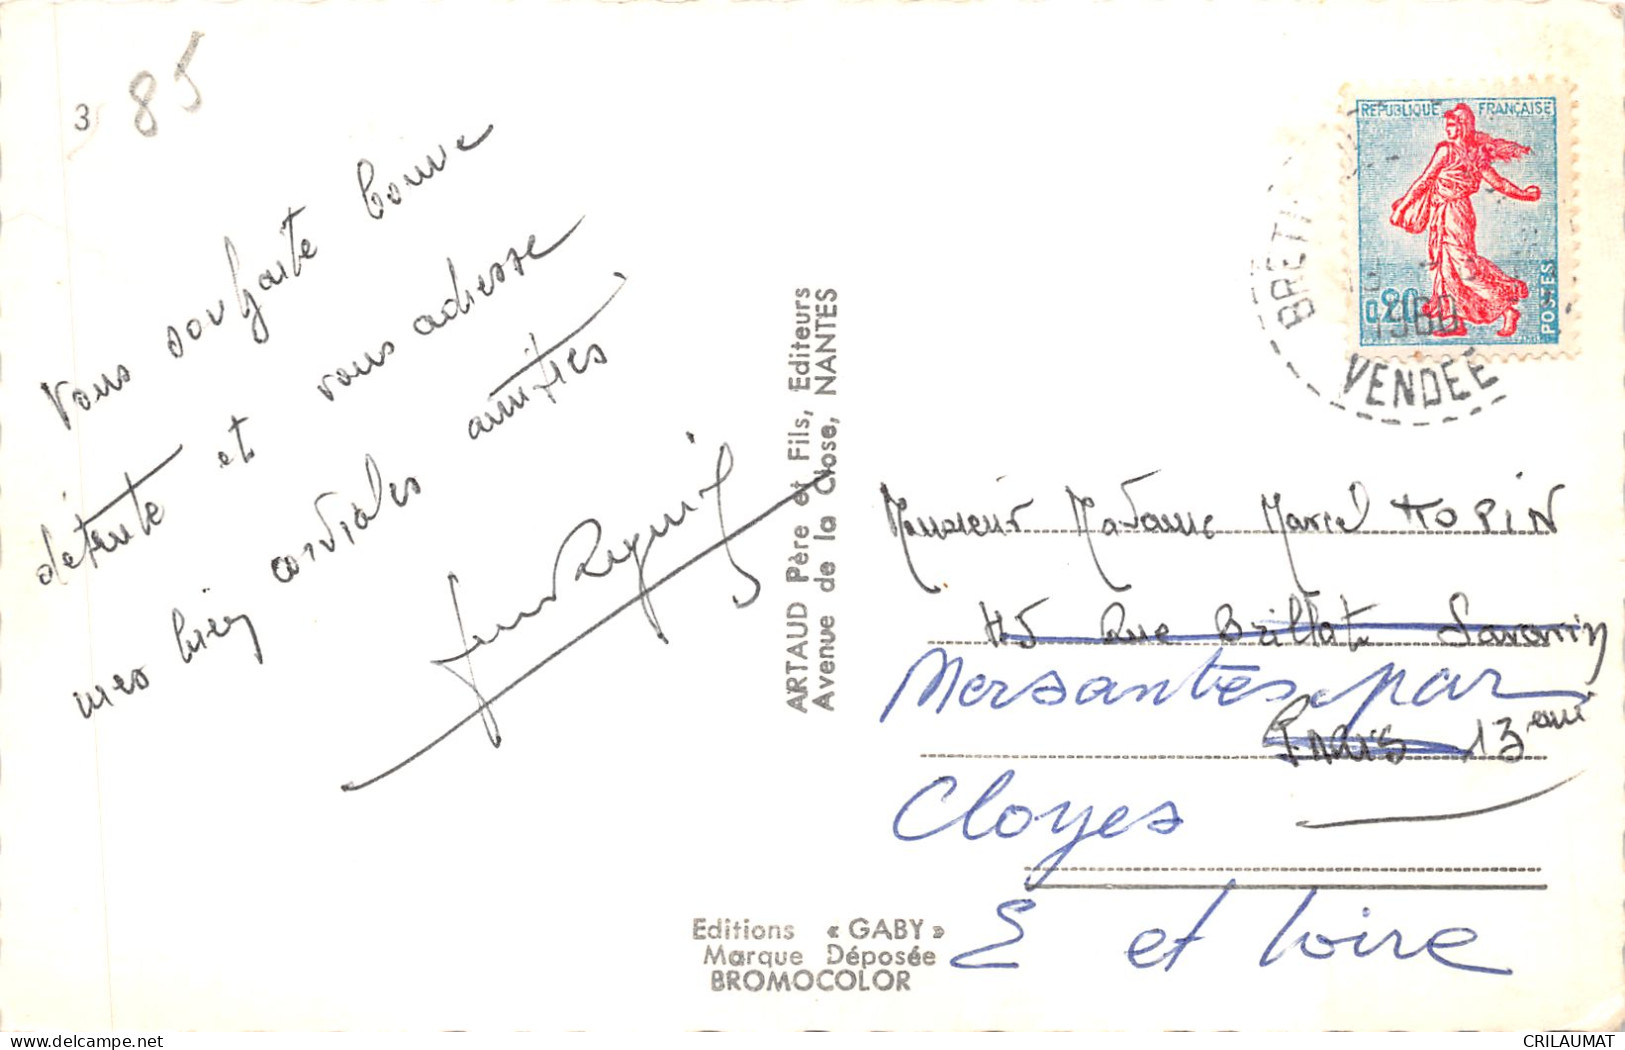 3
85
Vous souhaite bonne
détente et vous adresse
mes bien cordiales amitiés
ARTAUD Père et Fils, Editeurs
Avenue de la Close, NANTES
REPUBLIQUE FRANÇAISE
0,20
POSTES
1960
VENDEE
Monsieur Madame Marcel TOPIN
45 Rue Brillat Savarin
Mersantes par
Paris 13 eme
Cloyes
E et Loire
Editions « GABY »
Marque Déposée
BROMOCOLOR
CRILAUMAT